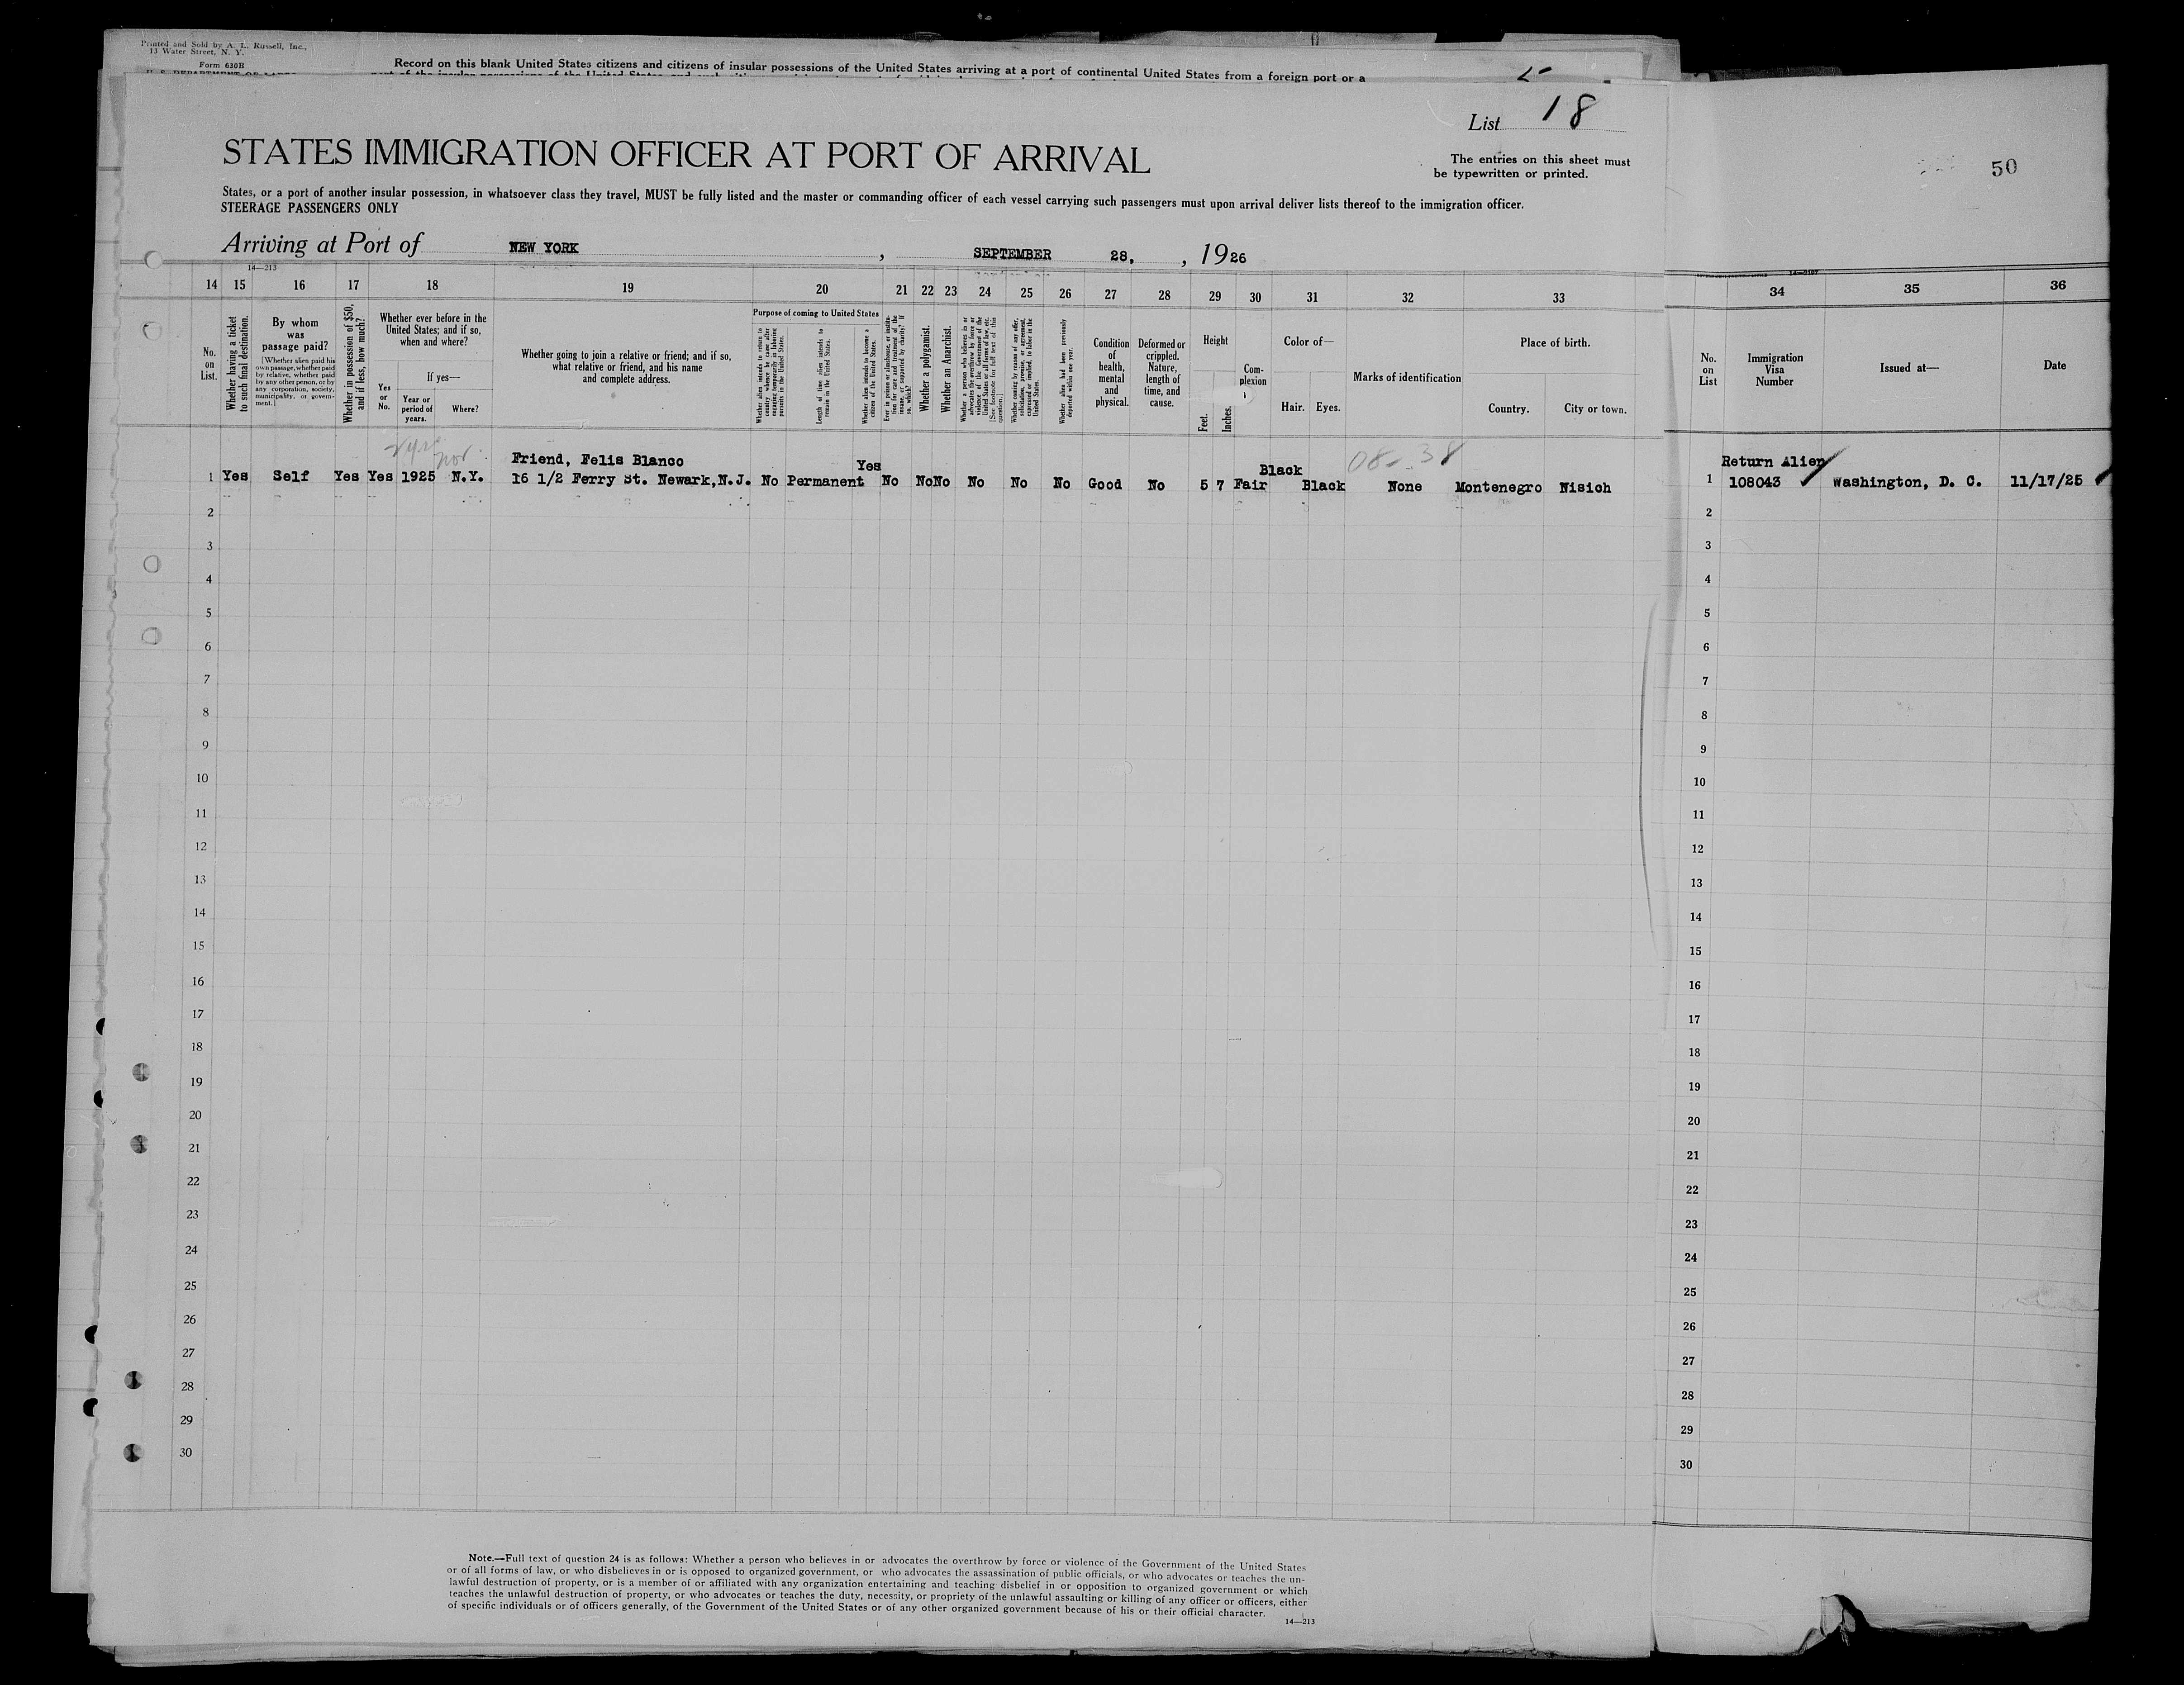 Printed and Sold by A. L. Russell, Inc.,
13 Water Street, N. Y.
Form 630B
Record on this blank United States citizens and citizens of insular possessions of the United States arriving at a port of continental United States from a foreign port or a
List 18
STATES IMMIGRATION OFFICER AT PORT OF ARRIVAL
The entries on this sheet must
be typewritten or printed.
50
States, or a port of another insular possession, in whatsoever class they travel, MUST be fully listed and the master or commanding officer of each vessel carrying such passengers must upon arrival deliver lists thereof to the immigration officer.
STEERAGE PASSENGERS ONLY
Arriving at Port of NEW YORK , SEPTEMBER 28, , 1926
14—213
14 15 16 17 18 19 20 21 22 23 24 25 26 27 28 29 30 31 32 33 34 35 36
No. on List.
Whether having a ticket to such final destination.
By whom was passage paid?
[Whether alien paid his own passage, whether paid by relative, whether paid by any other person, or by any corporation, society, municipality, or government.]
Whether in possession of $50, and if less, how much?
Whether ever before in the United States; and if so, when and where?
Yes or No.
If yes—
Year or period of years.
Where?
Whether going to join a relative or friend; and if so, what relative or friend, and his name and complete address.
Purpose of coming to United States
Whether alien intends to return to country whence he came after engaging temporarily in laboring pursuits in the United States.
Length of time alien intends to remain in the United States.
Whether alien intends to become a citizen of the United States.
Ever in prison or almshouse, or institution for care and treatment of the insane, or supported by charity? If so, which?
Whether a polygamist.
Whether an Anarchist.
Whether a person who believes in or advocates the overthrow by force or violence of the Government of the United States or all forms of law, etc. [See footnote for full text of this question.]
Whether coming by reason of any offer, solicitation, promise, or agreement, expressed or implied, to labor in the United States.
Whether alien had been previously deported within one year.
Condition of health, mental and physical.
Deformed or crippled. Nature, length of time, and cause.
Height
Feet. Inches.
Complexion
Color of—
Hair. Eyes.
Marks of identification
Place of birth.
Country. City or town.
No. on List
Immigration Visa Number
Issued at—
Date
Friend, Felis Blanco Yes Black 08 38 Return Alien
1 Yes Self Yes Yes 1925 N.Y. 16 1/2 Ferry St. Newark,N.J. No Permanent No No No No No No Good No 5 7 Fair Black None Montenegro Nisich 1 108043 Washington, D. C. 11/17/25
2 2
3 3
4 4
5 5
6 6
7 7
8 8
9 9
10 10
11 11
12 12
13 13
14 14
15 15
16 16
17 17
18 18
19 19
20 20
21 21
22 22
23 23
24 24
25 25
26 26
27 27
28 28
29 29
30 30
Note.—Full text of question 24 is as follows: Whether a person who believes in or advocates the overthrow by force or violence of the Government of the United States
or of all forms of law, or who disbelieves in or is opposed to organized government, or who advocates the assassination of public officials, or who advocates or teaches the un-
lawful destruction of property, or is a member of or affiliated with any organization entertaining and teaching disbelief in or opposition to organized government or which
teaches the unlawful destruction of property, or who advocates or teaches the duty, necessity, or propriety of the unlawful assaulting or killing of any officer or officers, either
of specific individuals or of officers generally, of the Government of the United States or of any other organized government because of his or their official character.
14—213